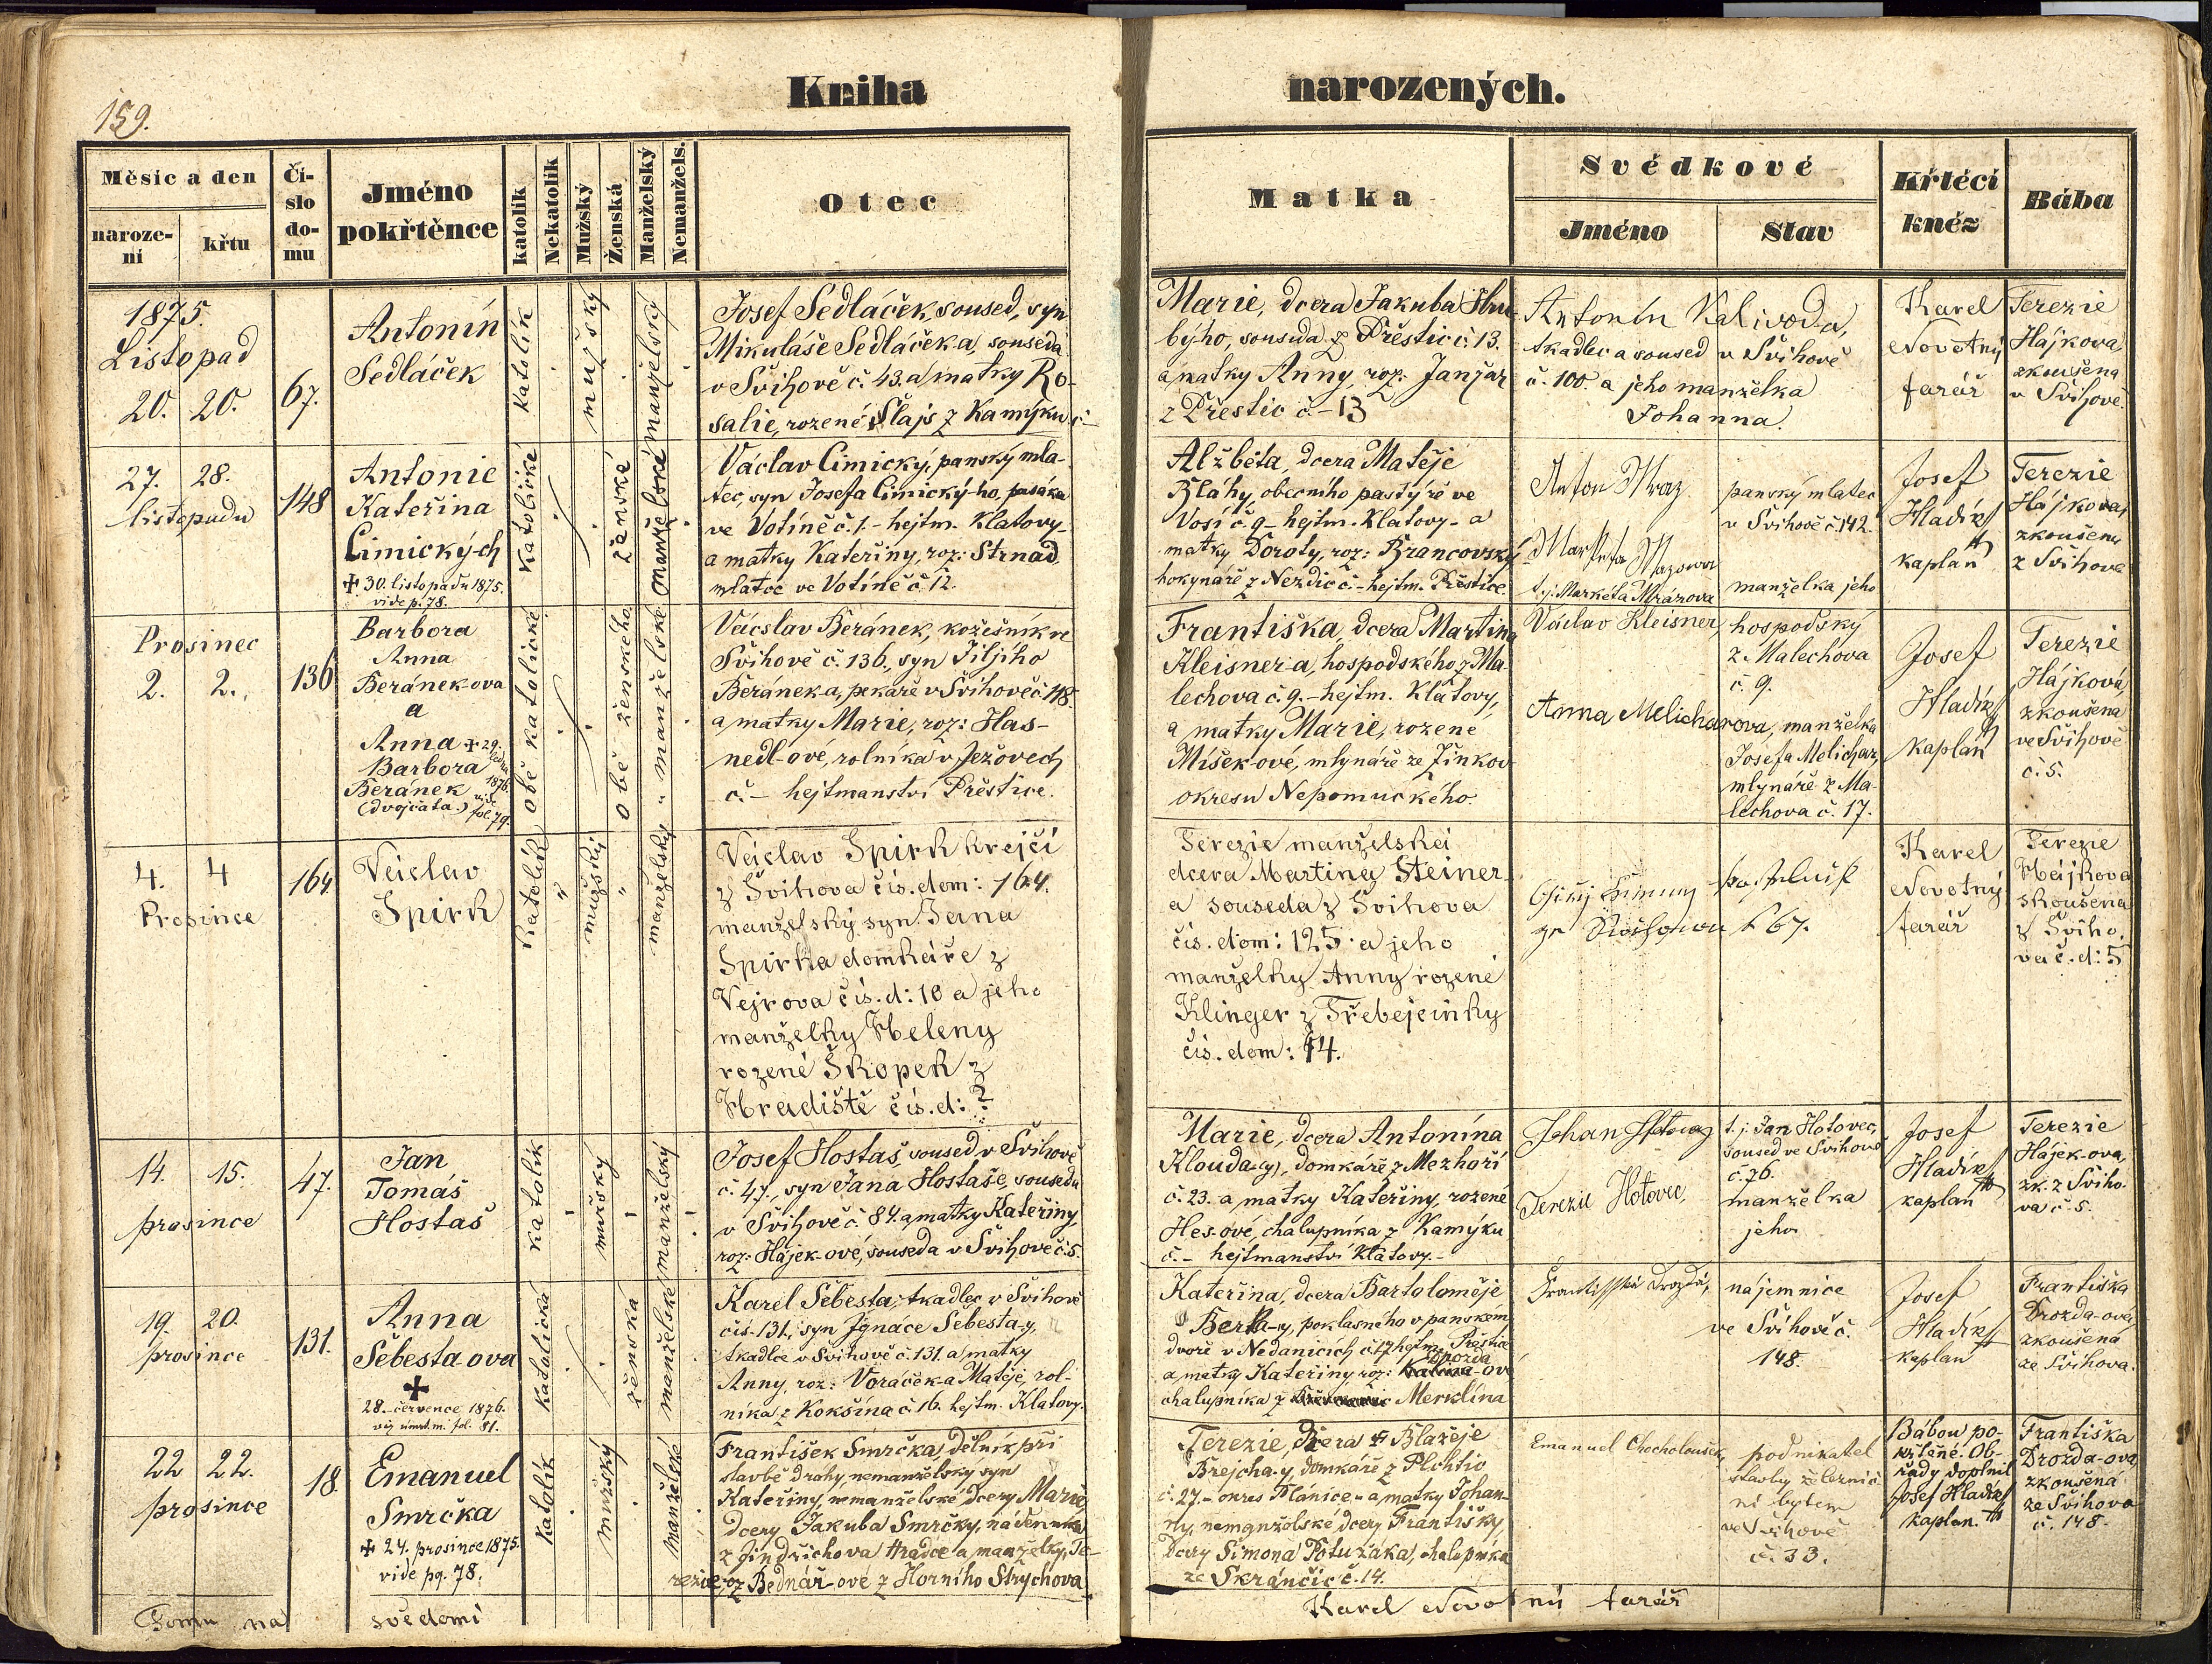 Kniha narozených.
159.
Měsíc a den
naroze-
ní
křtu
Čí-
slo
do-
mu
Jméno
pokřtěnce
katolík
Nekatolík
Mužský
Ženská
Manželský
Nemanžels.
Otec
Matka
Svědkové
Jméno
Stav
Křtécí
kněz
Bába
1875.
Listopad
20. 20.
67.
Antonín
Sedláček
katolík
mužský
manželský
Josef Sedláček, soused, syn
Mikuláše Sedláčka, souseda
v Švihově č. 43. a matky Ro-
salie, rozené Šlajs z Kamýku č. –
Marie, dcera Jakuba Hru-
býho, souseda z Přeštic č. 13.
a matky Anny, roz: Janžar
z Přeštic č. – 13
Antonín Kalivoda,
tkadlec a soused v Švihově
č. 100. a jeho manželka
Johanna.
Karel
Novotný
farář
Terezie
Hájkova
zkoušena
v Švihově.
27. 28.
listopadu
148
Antonie
Kateřina
Cimických
✝ 30. listopadu 1875.
vide p. 78.
katolické
ženské
manželské
Václav Cimický, panský mla-
tec, syn Josefa Cimický-ho, pasáka
ve Votíně č. 1. – hejtm. Klatovy –
a matky Kateřiny, roz: Strnad,
mlatce ve Votíně č. 12.
Alžběta, dcera Matěje
Bláhy, obecního pastýře ve
Vosí č. 9 – hejtm. Klatovy – a
matky Doroty, roz: Brancovský
hokynáře z Nezdic č. – hejtm. Přeštice
Anton Mraz
t. j. Markéta Mrázova
panský mlatec
v Švihově č. 142.
manželka jeho
Josef
Hladík
kaplan
Terezie
Hájkova,
zkoušena
z Švihova
Prosinec
2. 2.
136
Barbora
Anna
Beránek-ova
a
Anna ✝ 29.
ledna
Barbora 1876.
Beránek vide
(dvojčata.) fol. 79.
obě katolické
obě ženského
manželské „ manželské
Vácslav Beránek, kožešník ve
Švihově č. 136., syn Jiljího
Beránek-a, pekaře v Švihově č. 118.
a matky Marie, roz: Has-
nedl-ové, rolníka v Ježovech
č. – hejtmanství Přeštice.
Františka, dcera Martina
Kleisner-a, hospodského z Ma-
lechova č. 9. – hejtm. Klatovy,
a matky Marie, rozené
Míšek-ové, mlynáře ze Žinkov
okresu Nepomuckého.
Václav Kleisner,
Anna Melicharova,
hospodský
z Malechova
č. 9.
manželka
Josefa Melichar,
mlynáře z Ma-
lechova č. 17.
Josef
Hladík
kaplan
Terezie
Hájková,
zkoušena
ve Švihově
č. 5.
4. 4
Prosince
164
Václav
Spirk
katolík
mužský
manželský
Václav Spirk krejčí
z Švihova čís. dom: 164.
manželský syn Jana
Spirka domkáře z
Vejrova čís. d: 10 a jeho
manželky Heleny
rozené Škopek z
Hradiště čís. d: ?
Terezie manželská
dcera Martina Steiner-
a souseda z Švihova
čís. dom: 125 a jeho
manželky Anny rozené
Klinger z Třebejčinky
čís. dom: 14.
Karel
Novotný
farář
Terezie
Hájkova
skoušena
z Šviho.
va č. d: 5
14. 15.
prosince
47.
Jan
Tomáš
Hostaš
katolík
mužský
manželský
Josef Hostaš, soused v Švihově
č. 47., syn Jana Hostaše, souseda
v Švihově č. 84. a matky Kateřiny,
roz: Hájek-ové, souseda v Švihově č. 5.
Marie, dcera Antonína
Klouda-(y), domkáře z Mezhoří
č. 23. a matky Kateřiny, rozené
Hes-ové, chalupníka z Kamýku
č. – hejtmanství Klatovy. –
Johan Hotovec
Terezie Hotovec
t. j. Jan Hotovec,
soused ve Švihově
č. 76.
manželka
jeho
Josef
Hladík
kaplan
Terezie
Hájek-ova,
zk. z Šviho-
va č. 5.
19. 20.
prosince
131.
Anna
Šebesta ova
✝
28. července 1876.
viz úmrt. m. fol. 81.
katolická
ženská
manželské
Karel Šebesta, tkadlec v Švihově
čís. 131., syn Ignáce Šebesta-y,
tkadlce v Švihově č. 131. a matky
Anny, roz: Voráček-a Matěje, rol-
níka z Kokšína č. 16. hejtm. Klatovy.
Kateřina, dcera Bartoloměje
Berka-y, poklasného v panském
dvoře v Nedanicích č. 17 hejtm. Přeštice
Drozda
a matky Kateřiny, roz: -ové
chalupníka z Merklína
Františka Drozdá,
nájemnice
ve Švihově č.
148.
Josef
Hladík
kaplan
Františka
Drozda-ová
zkoušená
ze Švihova.
22 22.
prosince
18.
Emanuel
Smrčka
✝ 24. prosince 1875.
vide pg. 78.
katolík
mužský
manželské
František Smrčka, dělník při
stavbě dráhy, nemanželský syn
Kateřiny, nemanželské dcery Marie,
dcery Jakuba Smrčky, nádenníka
z Jindřichova Hradce a manželky Te-
rezie, roz Bednář-ové z Horního Strychova
Terezie, dcera Blažeje
Brejcha-y, domkáře z Plchtic
č. 27. – okres Plánice – a matky Johan-
ny, nemanželské dcery Františky,
dcery Šimona Potužáka, chalupníka
ze Skránčic č. 14.
Emanuel Chocholoušek,
podnikatel
stavby železnič-
ní bytem
ve Švihově
č. 33.
Bábou po-
křtěné. Ob-
řady doplnil
Josef Hladík
kaplan.
Františka
Drozda-ova
zkoušená
ze Švihova
č. 148.
Tomu na svědomí
Karel Novotný farář